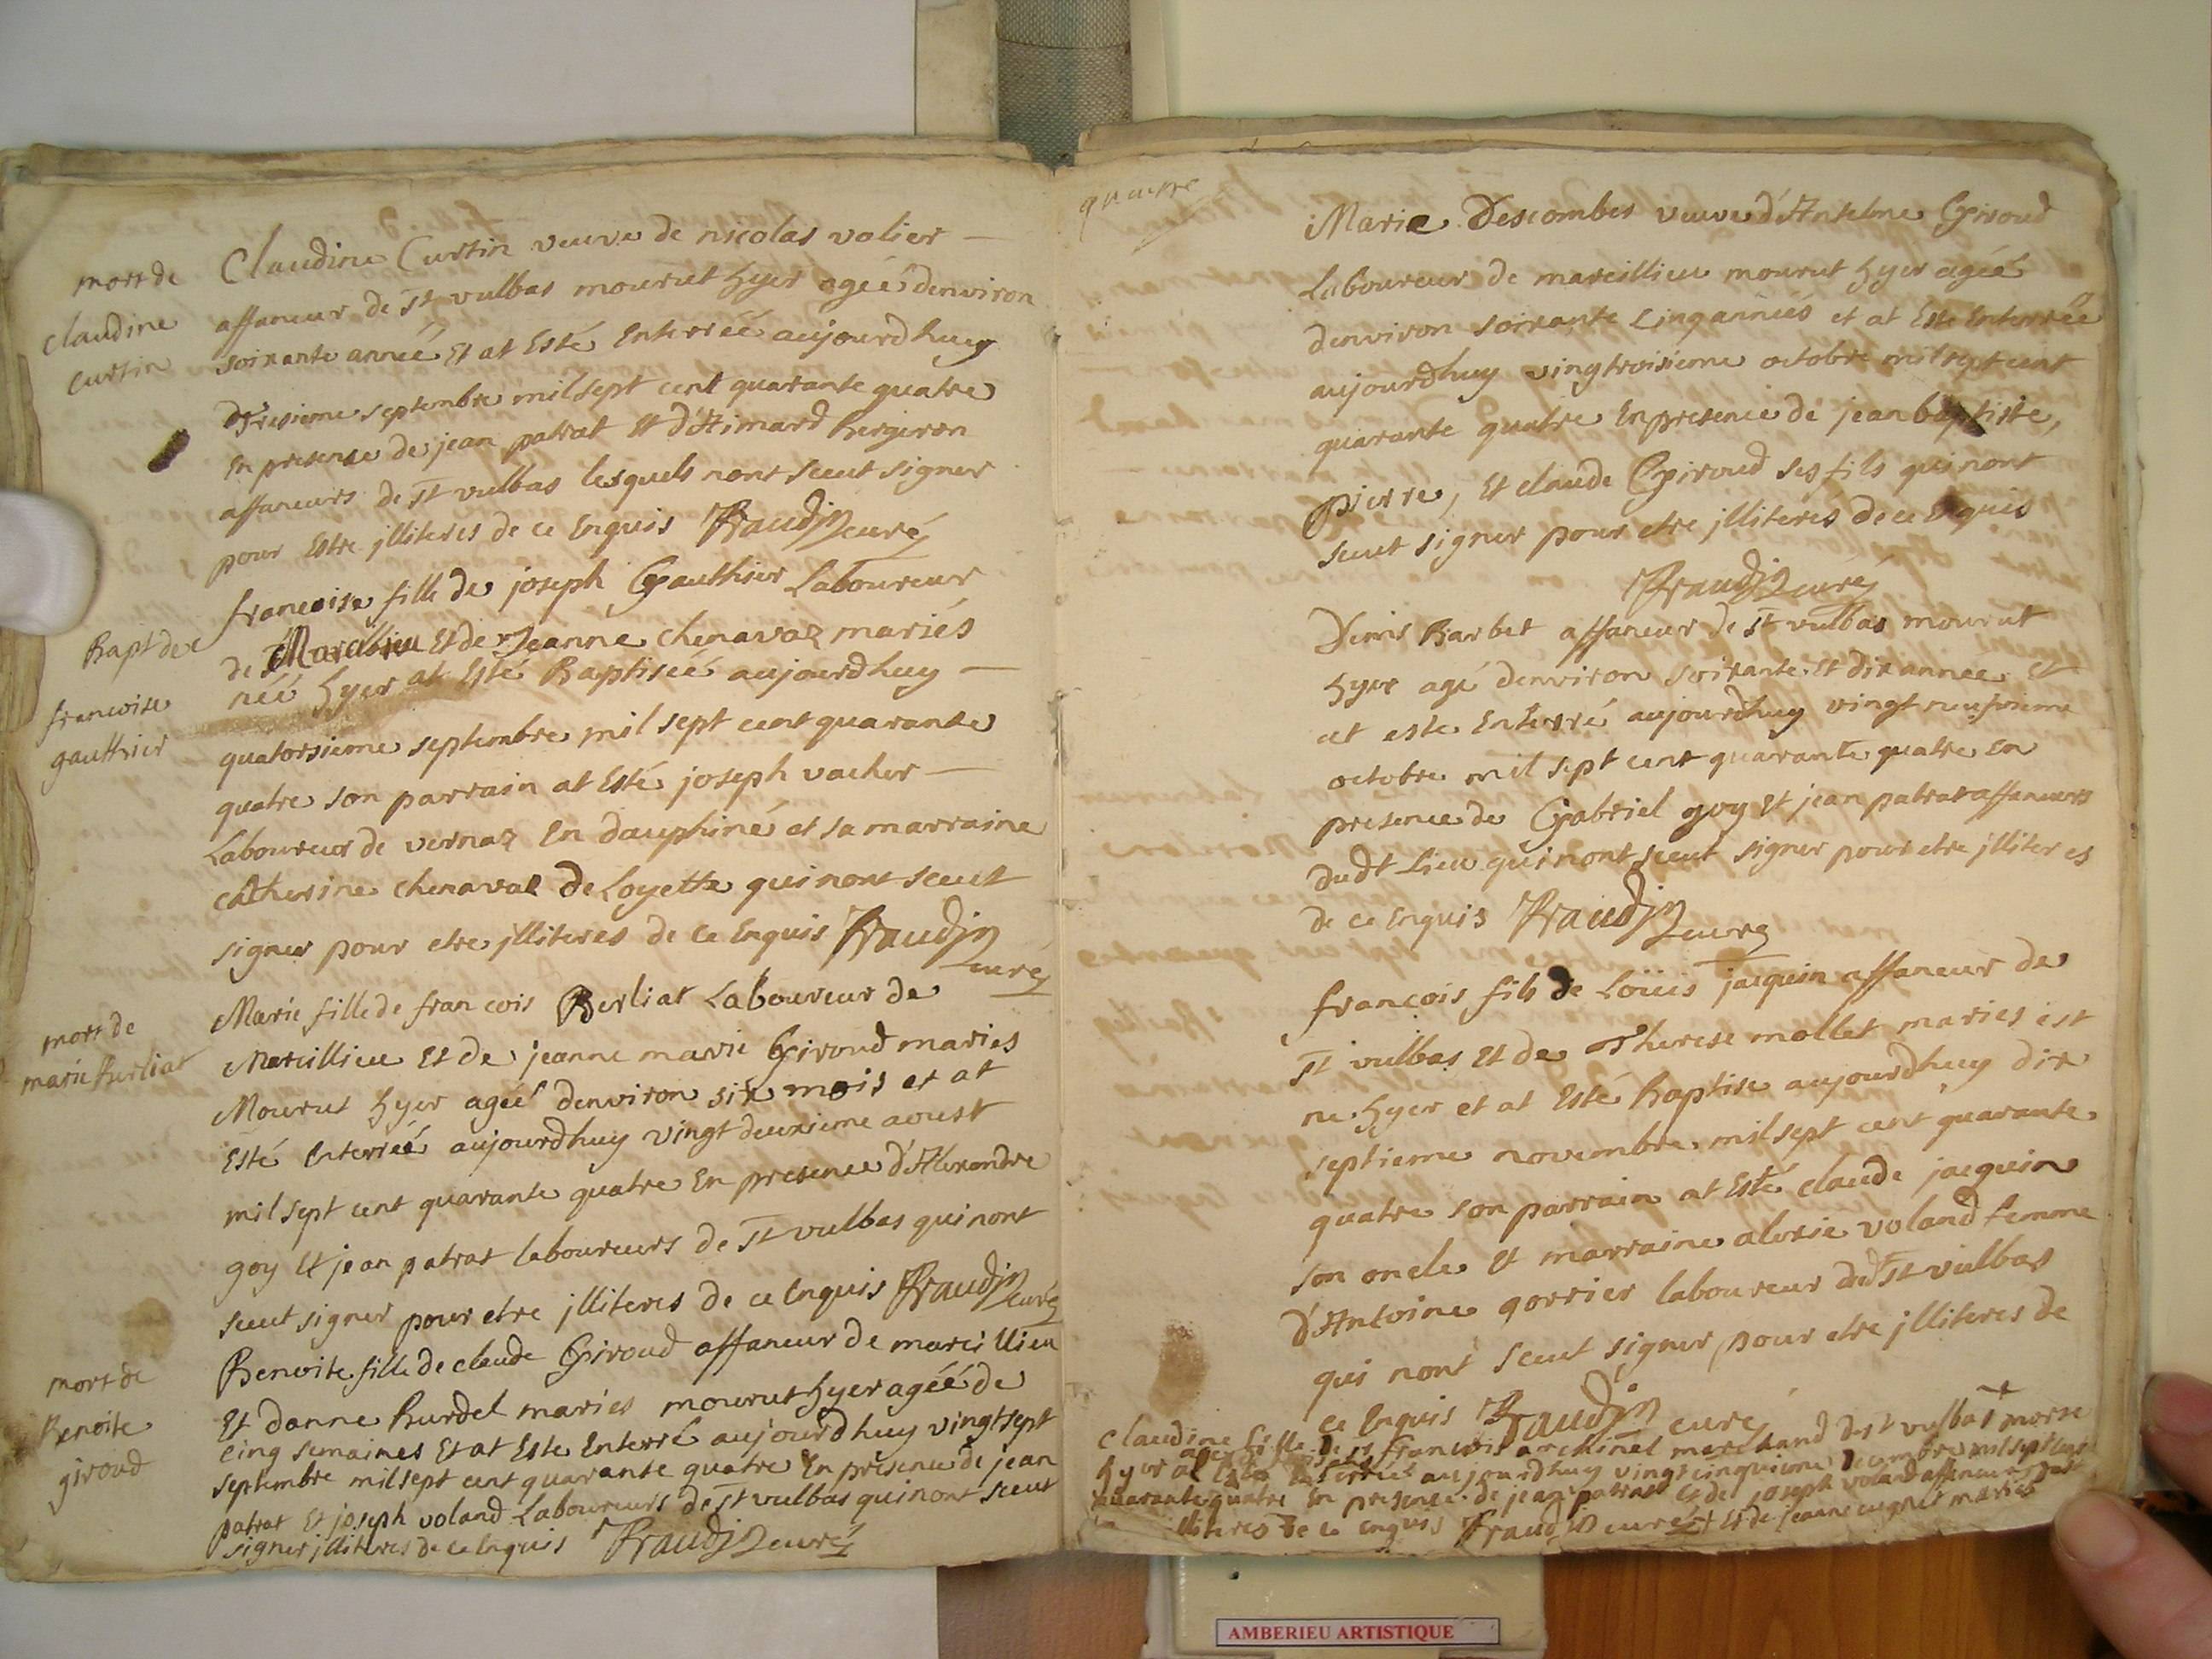 mort de
claudine
curtin
Claudine Curtin veuve de nicolas valier —
affaneur de st vulbas mourut hyer ageé denviron
soixante anneé Et at Esté Enterreé aujourdhuy
tresieme septembre mil sept cent quarante quatre
En presence de jean patrat Et d'Aimard bergeron
affaneurs de st vulbas lesquels nont sceut signer
pour Estre jlliteres de ce Enquis Fraudin curé
Bapt de
francoise
gauthier
francoise fille de joseph Gauthier Laboureur
de Marcilieu Et de Jeanne chenavaz mariés
neé hyer at Esté Baptiseé aujourdhuy —
quatorsieme septembre mil sept cent quarante
quatre son parrain at Esté joseph vacher —
Laboureur de vernaz En dauphiné et sa marraine
catherine chenaval de Loyette qui nont sceut
signer pour etre jlliteres de ce Enquis Fraudin
curé
mort de
marie berliat
Marie fille de francois Berliat Laboureur de
Marcillieu Et de jeanne marie Giroud maries
Mourut hyer ageé denviron six mois et at
Esté Enterreé aujourdhuy vingt deuxieme aoust
mil sept cent quarante quatre En presence d'Alexandre
goy Et jean patrat laboureurs de st vulbas qui nont
sceut signer pour etre jlliteres de ce Enquis Fraudin
curé
mort de
Benoite
giroud
Benoite fille de claude Giroud affaneur de marcillieu
Et danne burdel mariés mourut hyer ageé de
cinq semaines Et at Esté Enterré aujourdhuy vingt sept
septembre mil sept cent quarante quatre En presence de jean
patrat Et joseph voland Laboureurs de st vulbas qui nont sceut
signer jlliteres de ce Enquis Fraudin curé
quattre
Marie Descombes veuve d'Anselme Giroud
Laboureur de marcillieu mourut hyer ageé
denviron soixante cinq anneés et at Esté Enterreé
aujourdhuy vingtroisieme octobre mil sept cent
quarante quatre En presence de jean baptiste,
pierre, Et claude Giroud ses fils qui nont
sceut signer pour etre jlliterés de ce Enquis
Fraudin curé
Denis Barbet affaneur de st vulbas mourut
hyer agé denviron soixante Et dix anneé Et
at esté Enterré aujourdhuy vingt neufvieme
octobre mil sept cent quarante quatre En
presence de Gabriel goy Et jean patrat affaneurs
dudt Lieu qui nont sceut signer pour etre jlliteres
de ce Enquis Fraudin curé
françois fils de Loüis jacquin affaneur de
st vulbas Et de Therese mollet maries est
ne hyer et at Esté baptise aujourdhuy dix
septieme novembre mil sept cent quarante
quatre son parrain at Esté claude jacquin
son oncle Et marraine alexie voland femme
d'Antoine gorrier laboureur dud st vulbas
qui nont sceut signer pour etre jlliteres de
ce Enquis Fraudin curé
claudine fille de sr francois archinel marchand de st vulbas + morte
hyer at Esté Enterreé aujourdhuy vingt cinquieme decembre mil sept cent
quarante quatre En presence de jean patrat Et de joseph voland affaneurs
jlliteres de ce Enquis Fraudin curé + Et de jeanne cugnet mariés
AMBERIEU ARTISTIQUE